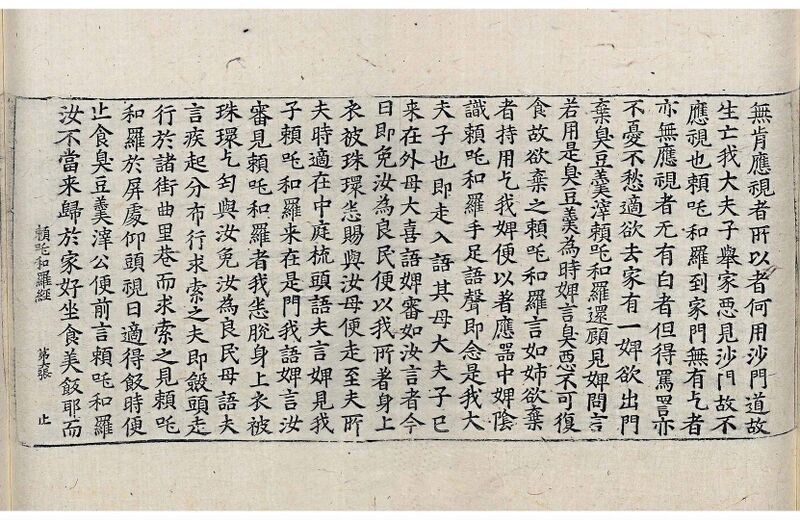 無肯應視者所以者何用沙門道故
生亡我大夫子舉家惡見沙門故不
應視也頼吒和羅到家門無有乞者
亦無應視者无有白者但得罵詈亦
不憂不愁適欲去家有一婢欲出門
棄臭豆羹滓頼吒和羅還顧見婢問言
若用是臭豆羹為時婢言臭惡不可復
食故欲棄之頼吒和羅言如姉欲棄
者持用乞我婢便以著應器中婢陰
識頼吒和羅手足語聲即念是我大
夫子也即走入語其母大夫子已
来在外母大喜語婢審如汝言者今
日即免汝為良民便以我所著身上
衣被珠環悉賜與汝母便走至夫所
夫時適在中庭梳頭語夫言婢見我
子頼吒和羅来在是門我語婢言汝
審見頼吒和羅者我悉脫身上衣被
珠環乞匄與汝免汝為良民母語夫
言疾起分布行求索之夫即斂頭走
行於諸街曲里巷而求索之見頼吒
和羅於屏處仰頭視日適得飯時便
止食臭豆羹滓公便前言頼吒和羅
汝不當来歸於家好坐食美飯耶而
頼吒和羅經 第張 止